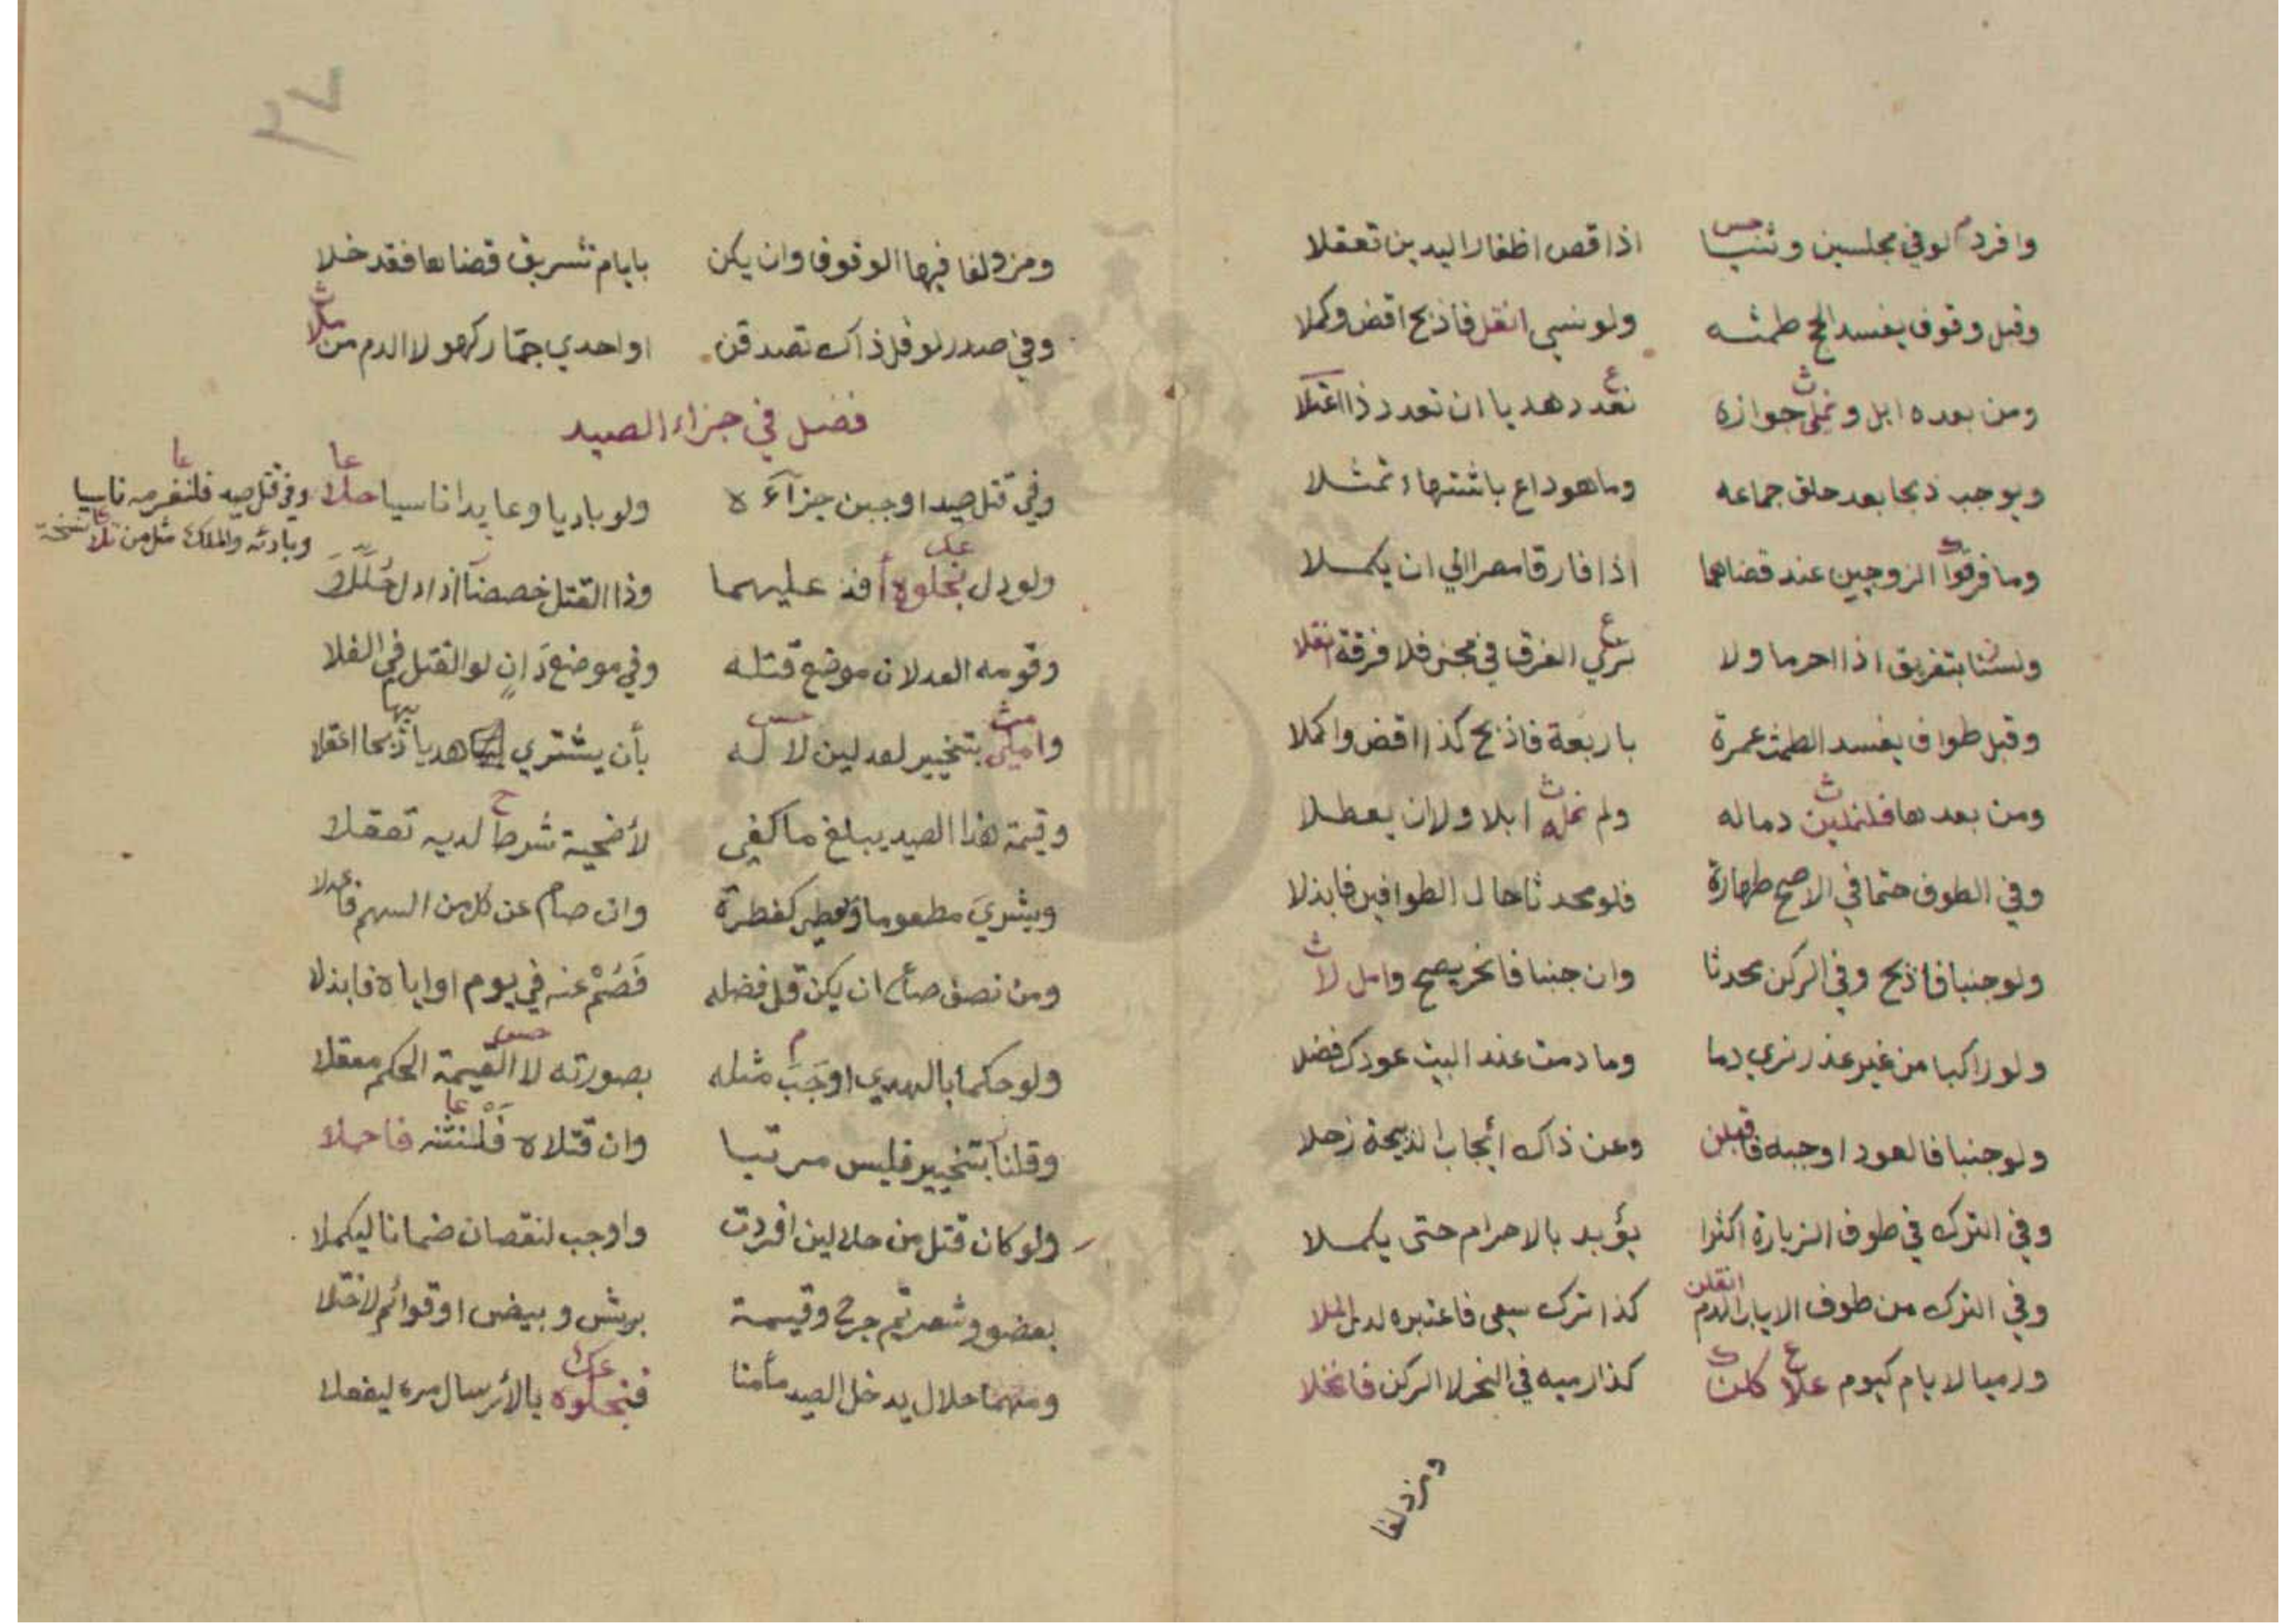 وافرد لوفي مجلسين وثنيا اذا قص اظفار اليدين تعقلا
وقبل وقوف يفسد الحج طمثه ولو نسي انقل فاذبح اقض وكملا
ومن بعده ابل ونملي جوازه تعدد هديا ان تعدد ذا اعتلا
ويوجب ذبحا بعد حلق جماعه وما هو داع باشتهاء تمثلا
وما فرقوا الزوجين عند قضاهما اذا فارقا مصرا الي ان يكملا
ولسنا بتفريق اذا احرما ولا نري الفرق في فلا فرقة انقلا
وقبل طواف يفسد الطمث عمرة باربعة فاذبح كذا اقض واكملا
ومن بعدها فلنملين دما له ولم نمله ابلا ولان يعطلا
وفي الطوف حتما في الاصح طهارة فلو محدثا حال الطوافين فابذلا
ولو جنبا فاذبح وفي الركن محدثا وان جنبا فانحر يصح وامل لا
ولو راكبا من غير عذر نري دما وما دمت عند البيت عودك فضلا
ولو جنبا فالعود اوجبه فاقبلن وعن ذاك ايجاب الذبيحة زحلا
وفي الترك في طوف الزيارة اكثرا يؤبد بالاحرام حتى يكملا
وفي الترك من طوف الاياب الدم انقلن كذا ترك سعي فاعتبره لدى الملا
ورميا لايام كيوم علا كلن كذا رميه في النحر لا الركن فانخلا
ومزدلفا
٢٧
ومزدلفا فيها الوقوف وان يكن بايام تشريق قضاها فقد خلا
وفي صدر لو قل ذاك تصدقن او احدي جمار كهو لا الدم من تلا
فصل في جزاء الصيد
وفي قتل صيد اوجبن جزآءه ولو باديا وعايدا ناسيا حلا
وفي قتل صيد فلنغرمه ناسيا
وبادئه والملك مثل من تلا نسخة
ولو دل نجلوه أفد عليهما وذا القتل خصصنا اذا دل
وقومه العدلان موضع قتله وفي موضع دان لو القتل في الفلا
واملي بتخيير لعدلين لا له بأن يشتري بها هديا ذبحا اعقلا
وقيمة هذا الصيد يبلغ ما كفي لأضحية شرطا لديه تعقلا
ويشري مطعوما كفطرة وان صام عن كل من السهم فاعدلا
ومن نصف صاع ان يكن قل فضله فصم عنه في يوم او اياه فابذلا
ولو حكما بالهدي اوجب مثله بصورته لا القيمة الحكم معقلا
وقلنا بتخيير فليس مرتبا وان قتلاه فلنثنه فاحملا
ولو كان قتل من حلالين افردت واوجب لنقصان ضمانا ليكملا
بعضو وشعر ثم جرح وقيمة بريش وبيض او قوائم لاختلا
ومنهما حلال يدخل الصيد مأمنا فنجلوه بالأرسال مره ليفعلا